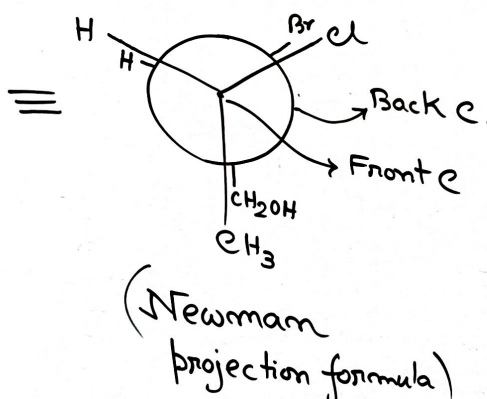 H
Br
Cl
H
Back C
Front C
CH2OH
CH3
(Newman
projection formula)